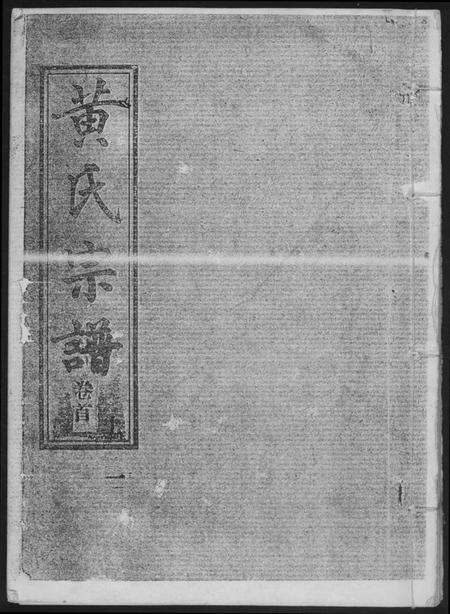 黄氏宗譜
卷首
一